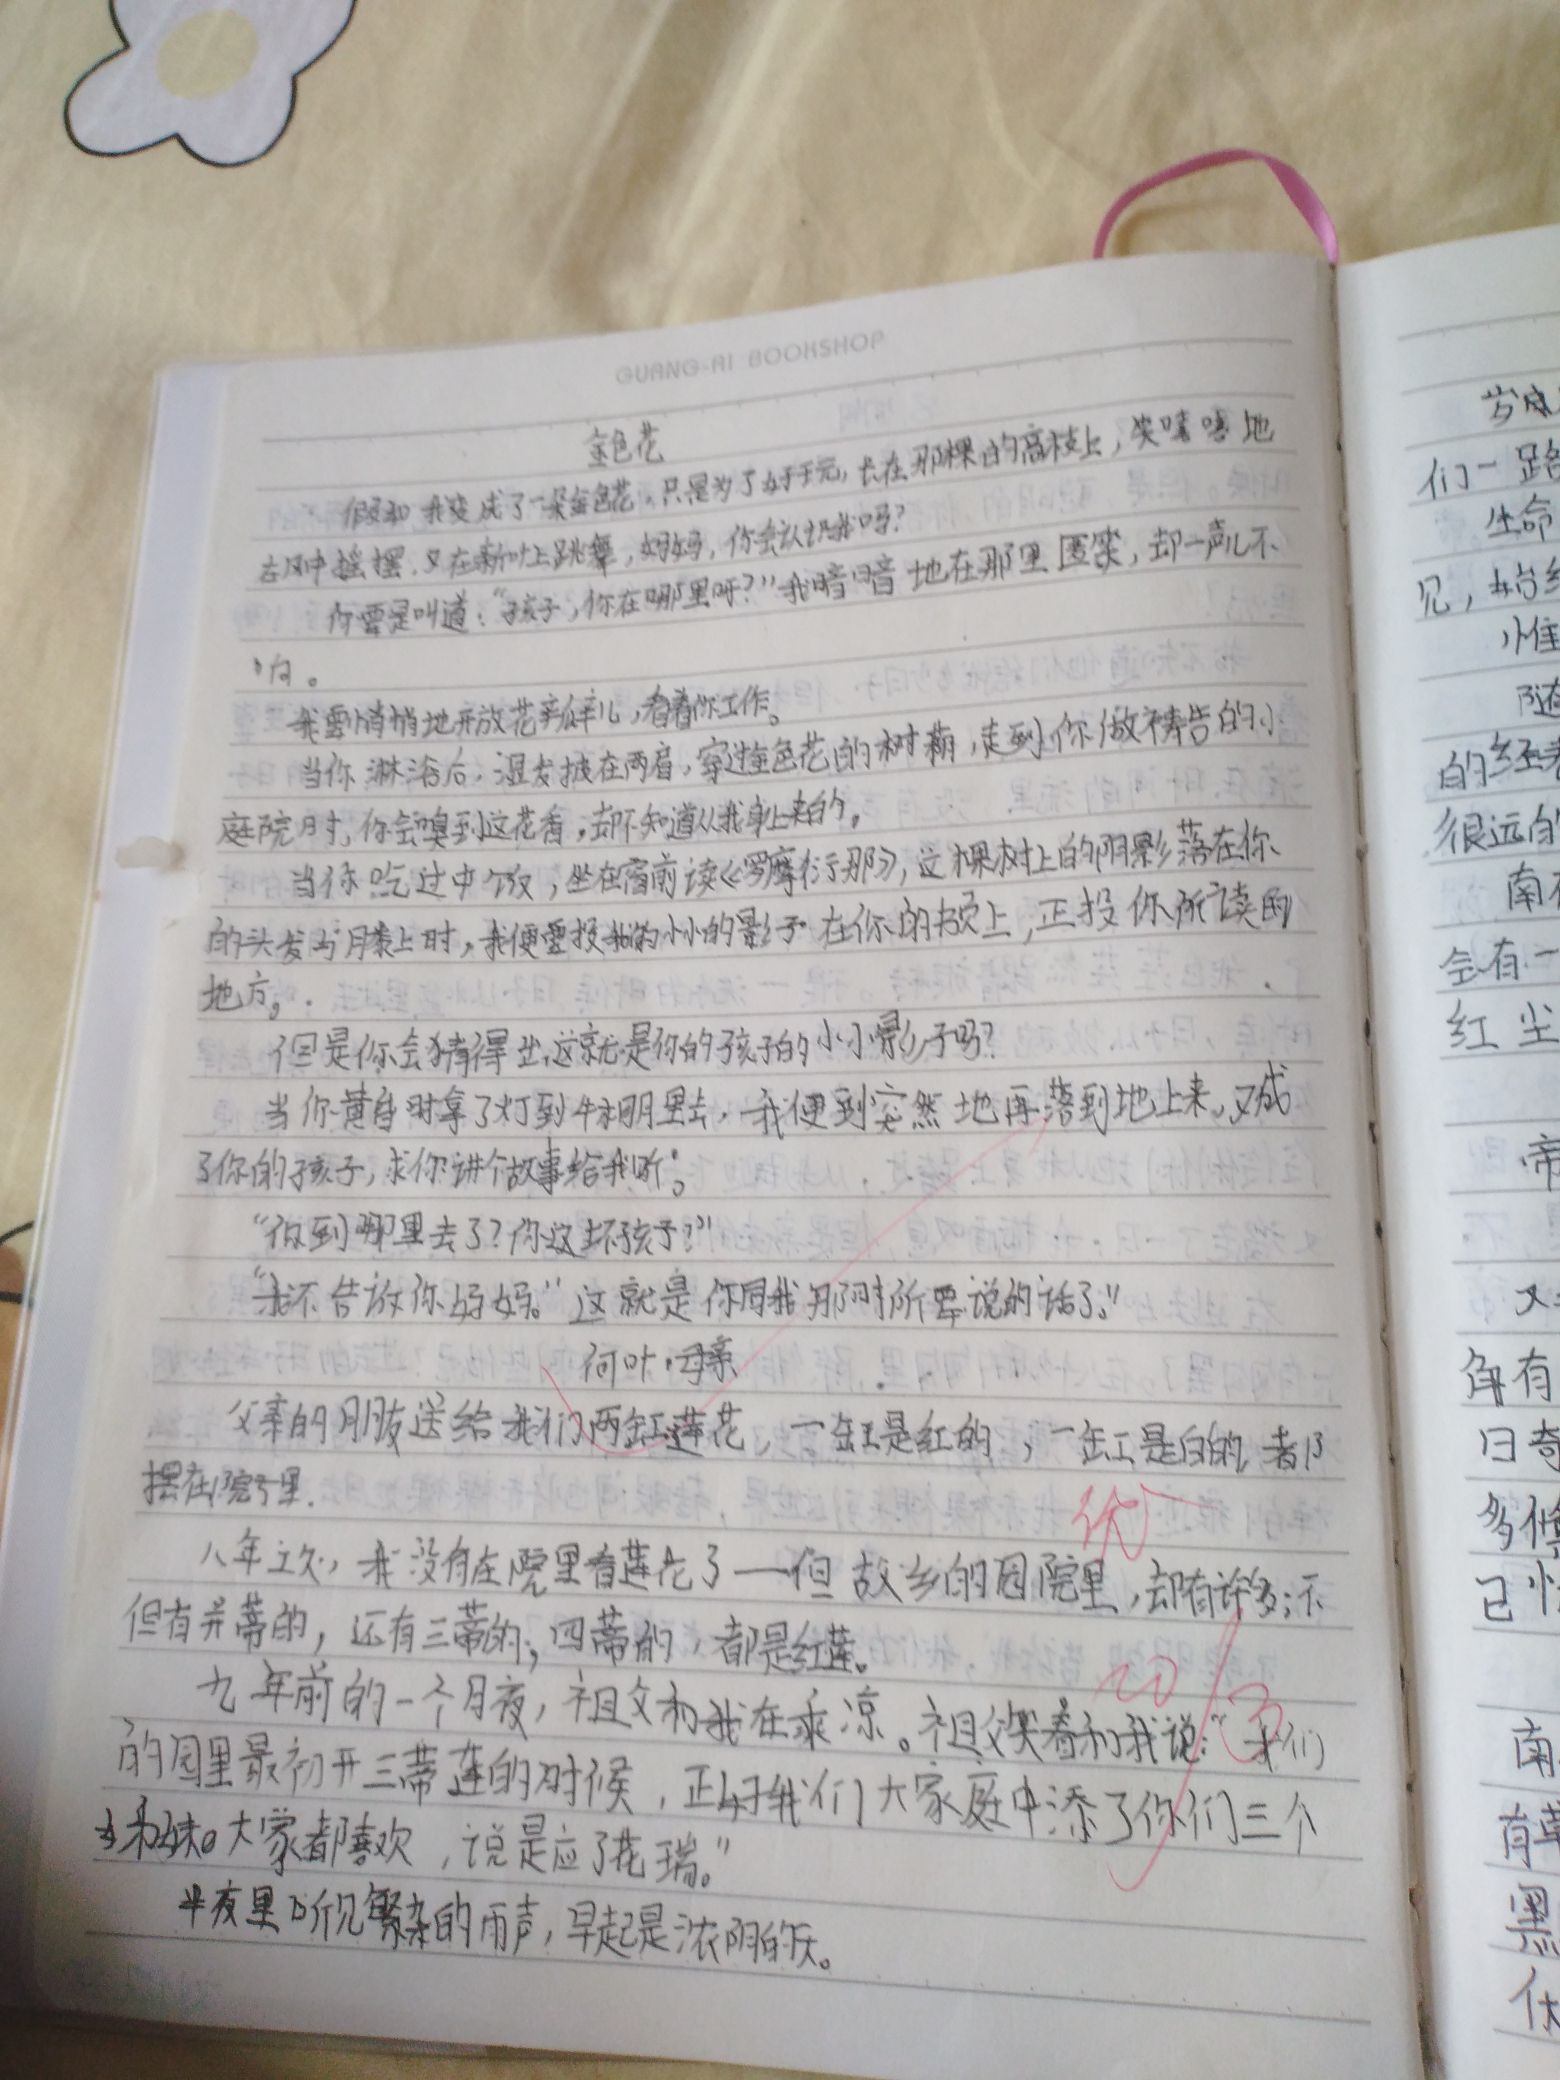 GUANG-AI BOOKSHOP
金色花
假如我变成了一朵金色花,只是为了好玩,长在那棵的高枝上,笑嘻嘻地
在风中摇摆,又在新叶上跳舞,妈妈,你会认识我吗?
你要是叫道:“孩子,你在哪里呀?”我暗暗地在那里匿笑,却一声儿不
响。
我要悄悄地开放花瓣儿,看着你工作。
当你淋浴后,湿发披在两肩,穿过金色花的树荫,走到你做祷告的小
庭院时,你会嗅到这花香,却不知道从我身上来的。
当你吃过中饭,坐在窗前读《罗摩衍那》,这棵树上的阴影落在你
的头发与膝上时,我便要投我的小小的影子在你的书页上,正投你所读的
地方。
但是你会猜得出,这就是你的孩子的小小影子吗?
当你黄昏时拿了灯到牛棚里去,我便到突然地再落到地上来,又成
了你的孩子,求你讲个故事给我听。
“你到哪里去了?你这坏孩子?”
“我不告放你妈妈。”这就是你同我那时所要说的话了。”
荷叶·母亲
父亲的朋友送给我们两缸莲花,一缸是红的,一缸是白的,都
摆在院子里.
八年之久,我没有在院里看莲花了——但故乡的园院里,却有许多;不
但有并蒂的,还有三蒂的,四蒂的,都是红莲。
优
九年前的一个月夜,祖父和我在乘凉。祖父笑着和我说:“我们
的园里最初开三蒂莲的时候,正好我们大家庭中添了你们三个
姊妹。大家都喜欢,说是应了花瑞。”
半夜里听见繁杂的雨声,早起是浓阴的天。
们一路
生命
见,
随
的经
很远的
南
会有一
红尘
帝
又
角有
日奇
多
已
南
有草
黑